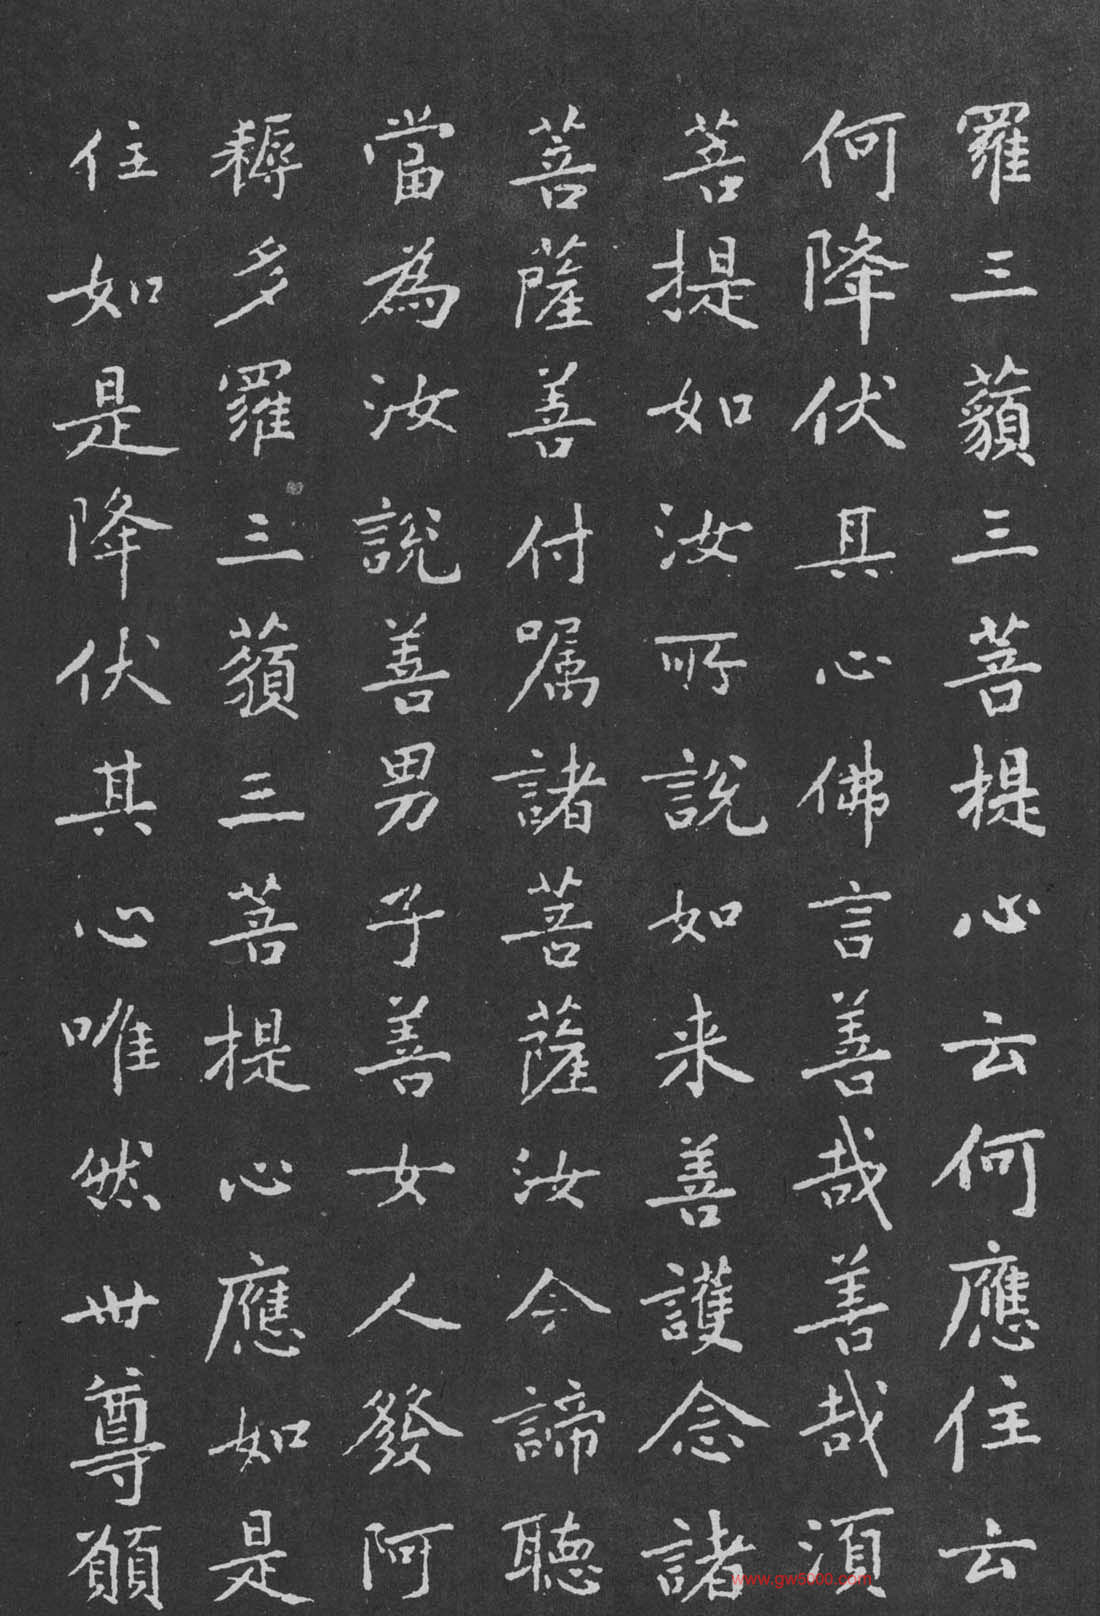 羅三藐三菩提心云何應住云
何降伏其心佛言善哉善哉須
菩提如汝所說如来善護念諸
菩薩善付嘱諸菩薩汝今諦聽
當為汝說善男子善女人發阿
耨多羅三藐三菩提心應如是
住如是降伏其心唯然世尊願
www.gw5000.com